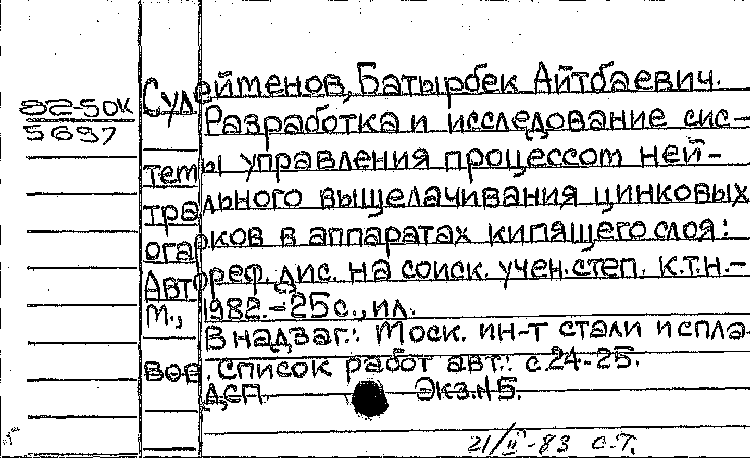 82-50K
5697
Сулейменов, Батырбек Айтбаевич.
Разработка и исследование сис-
темы управления процессом ней-
трального выщелачивания цинковых
огарков в аппаратах кипящего слоя:
Автореф. дис. на соиск. учен. степ. к.т.н.-
М., 1982.-25с., ил.
В надзаг.: Моск. ин-т стали и спла-
вов. Список работ авт.: с.24-25.
Д,СП. Экз.№5.
21/II-83 С.Т.